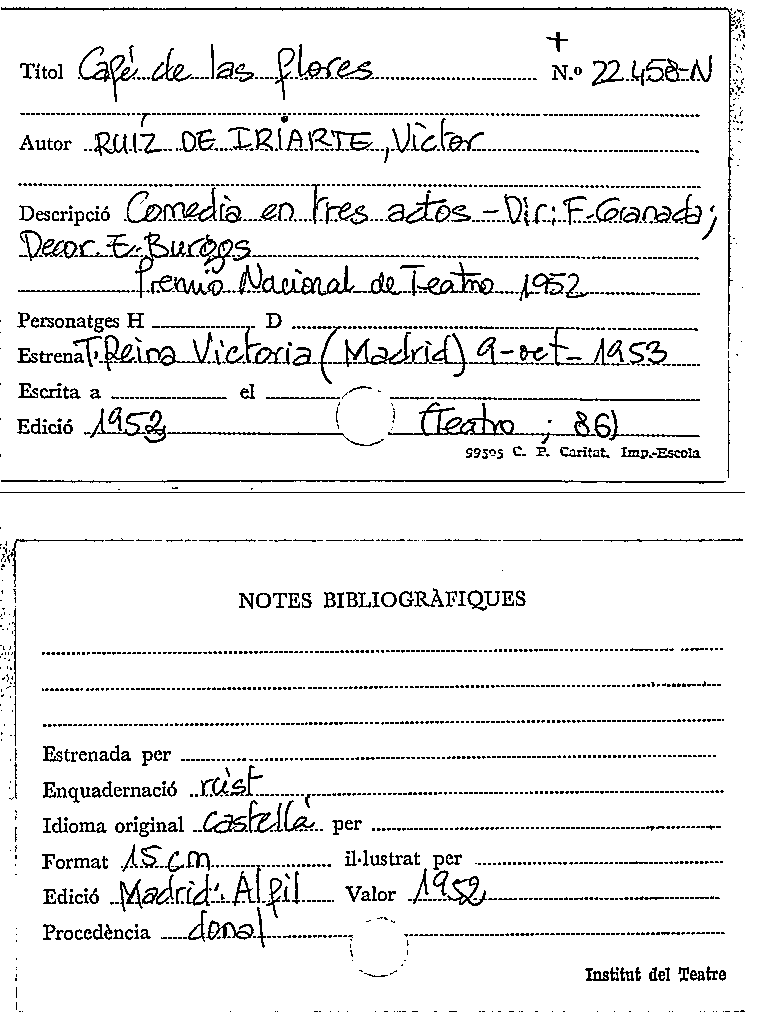 +
Títol Café de las flores N.º 22.458-N
Autor RUÍZ DE IRIARTE, Víctor
Descripció Comedia en tres actos - Dir: F. Granada;
Decor. E. Burgos
Premio Nacional de Teatro 1952
Personatges H D
Estrena T. Reina Victoria (Madrid) 9-oct-1953
Escrita a el
Edició 1953 (Teatro ; 86)
99505 C. P. Caritat. Imp.-Escola
NOTES BIBLIOGRÀFIQUES
Estrenada per
Enquadernació rúst
Idioma original castellà per
Format 15 cm il·lustrat per
Edició Madrid: Alfil Valor 1952
Procedència donat
Institut del Teatre